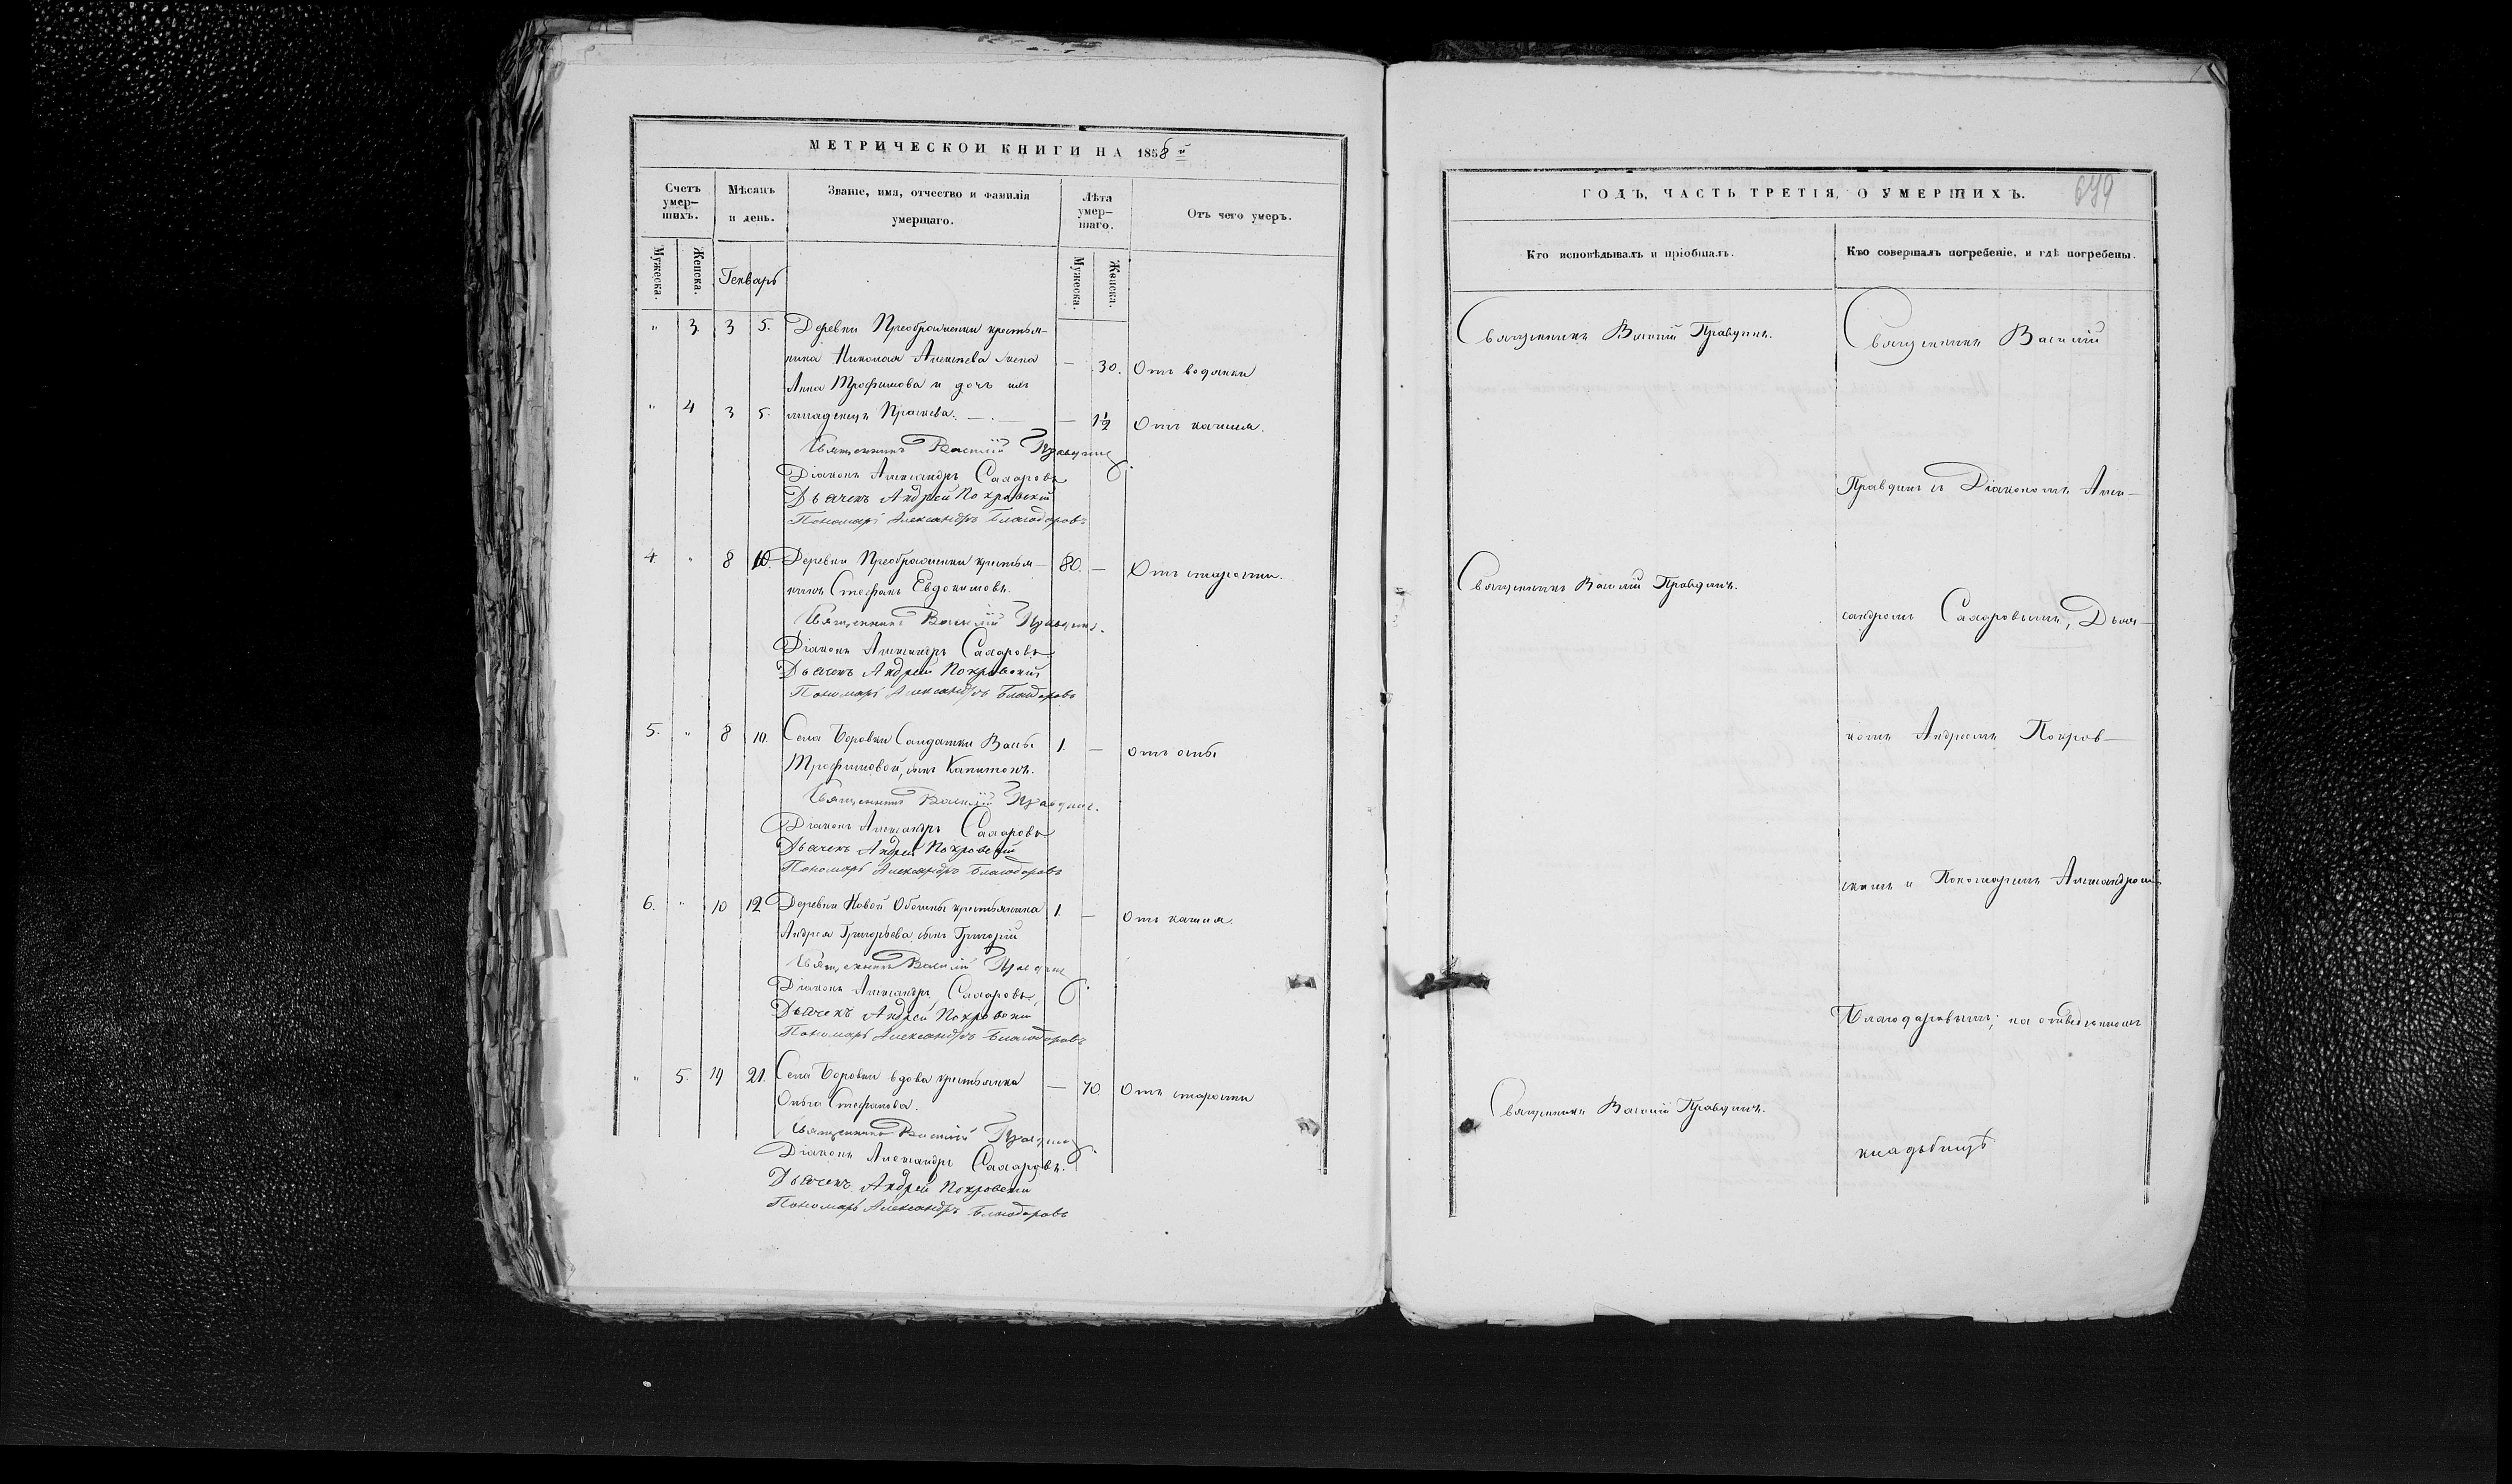 МЕТРИЧЕСКОЙ КНИГИ НА 1858й
Счетъ умер-шихъ.
Мѣсяцъ и день.
Званіе, имя, отчество и фамилія умершаго.
Лѣта умер-шаго.
Отъ чего умеръ.
Мужеска. Женска.
Генварь
Мужеска. Женска.
" 3. 3 5. Деревни Преображенки крестья-
нина Николая Алексѣева жена — 30. Отъ водянки
Анна Трофимова и дочь ихъ
" 4 3 5. младенецъ . — — 1½ Отъ кашля.
Священникъ Василій Правдинъ
Діаконъ Александръ Сахаровъ
Дьячекъ Андрей Покровскій
Пономарь Александръ Благодаровъ
4 " 8 10. Деревни Преображенки крестья- 80. — Отъ старости.
нинъ Стефанъ Евдокимовъ.
Священникъ Василій Правдинъ.
Діаконъ Александръ Сахаровъ.
Дьячекъ Андрей Покровскій
Пономарь Александръ Благодаровъ
5. " 8 10. Села Боровки Салдатки 1. — отъ оспы
Трофимовой, сынъ Капитонъ.
Священникъ Василій Правдинъ.
Діаконъ Александръ Сахаровъ
Дьячекъ Андрей Покровскій
Пономарь Александръ Благодаровъ
6. " 10 12 Деревни Новой крестьянина 1. — Отъ кашля
Андрея Григорьева сынъ Григорій
Священникъ Василій Правдинъ
Діаконъ Александръ Сахаровъ,
Дьячекъ Андрей Покровскій
Пономарь Александръ Благодаровъ
" 5. 19 21. Села Боровки вдова крестьянка — 70. Отъ старости
Ольга Стефанова.
Священникъ Василій Правдинъ
Діаконъ Александръ Сахаровъ.
Дьячекъ Андрей Покровскій
Пономарь Александръ Благодаровъ
ГОДЪ, ЧАСТЬ ТРЕТІЯ, О УМЕРШИХЪ.
Кто исповѣдывалъ и пріобщалъ.
Кто совершалъ погребеніе, и гдѣ погребены.
Священникъ Василій Правдинъ.
Священникъ Василій Правдинъ.
Священникъ Василій Правдинъ.
Священникъ Василій
Правдинъ съ Діакономъ Алек-
сандромъ Сахаровымъ, Дьяч-
комъ Андреемъ Покров-
скимъ и Пономаремъ Александромъ
Благодаровымъ; на отведенномъ
кладьбищѣ